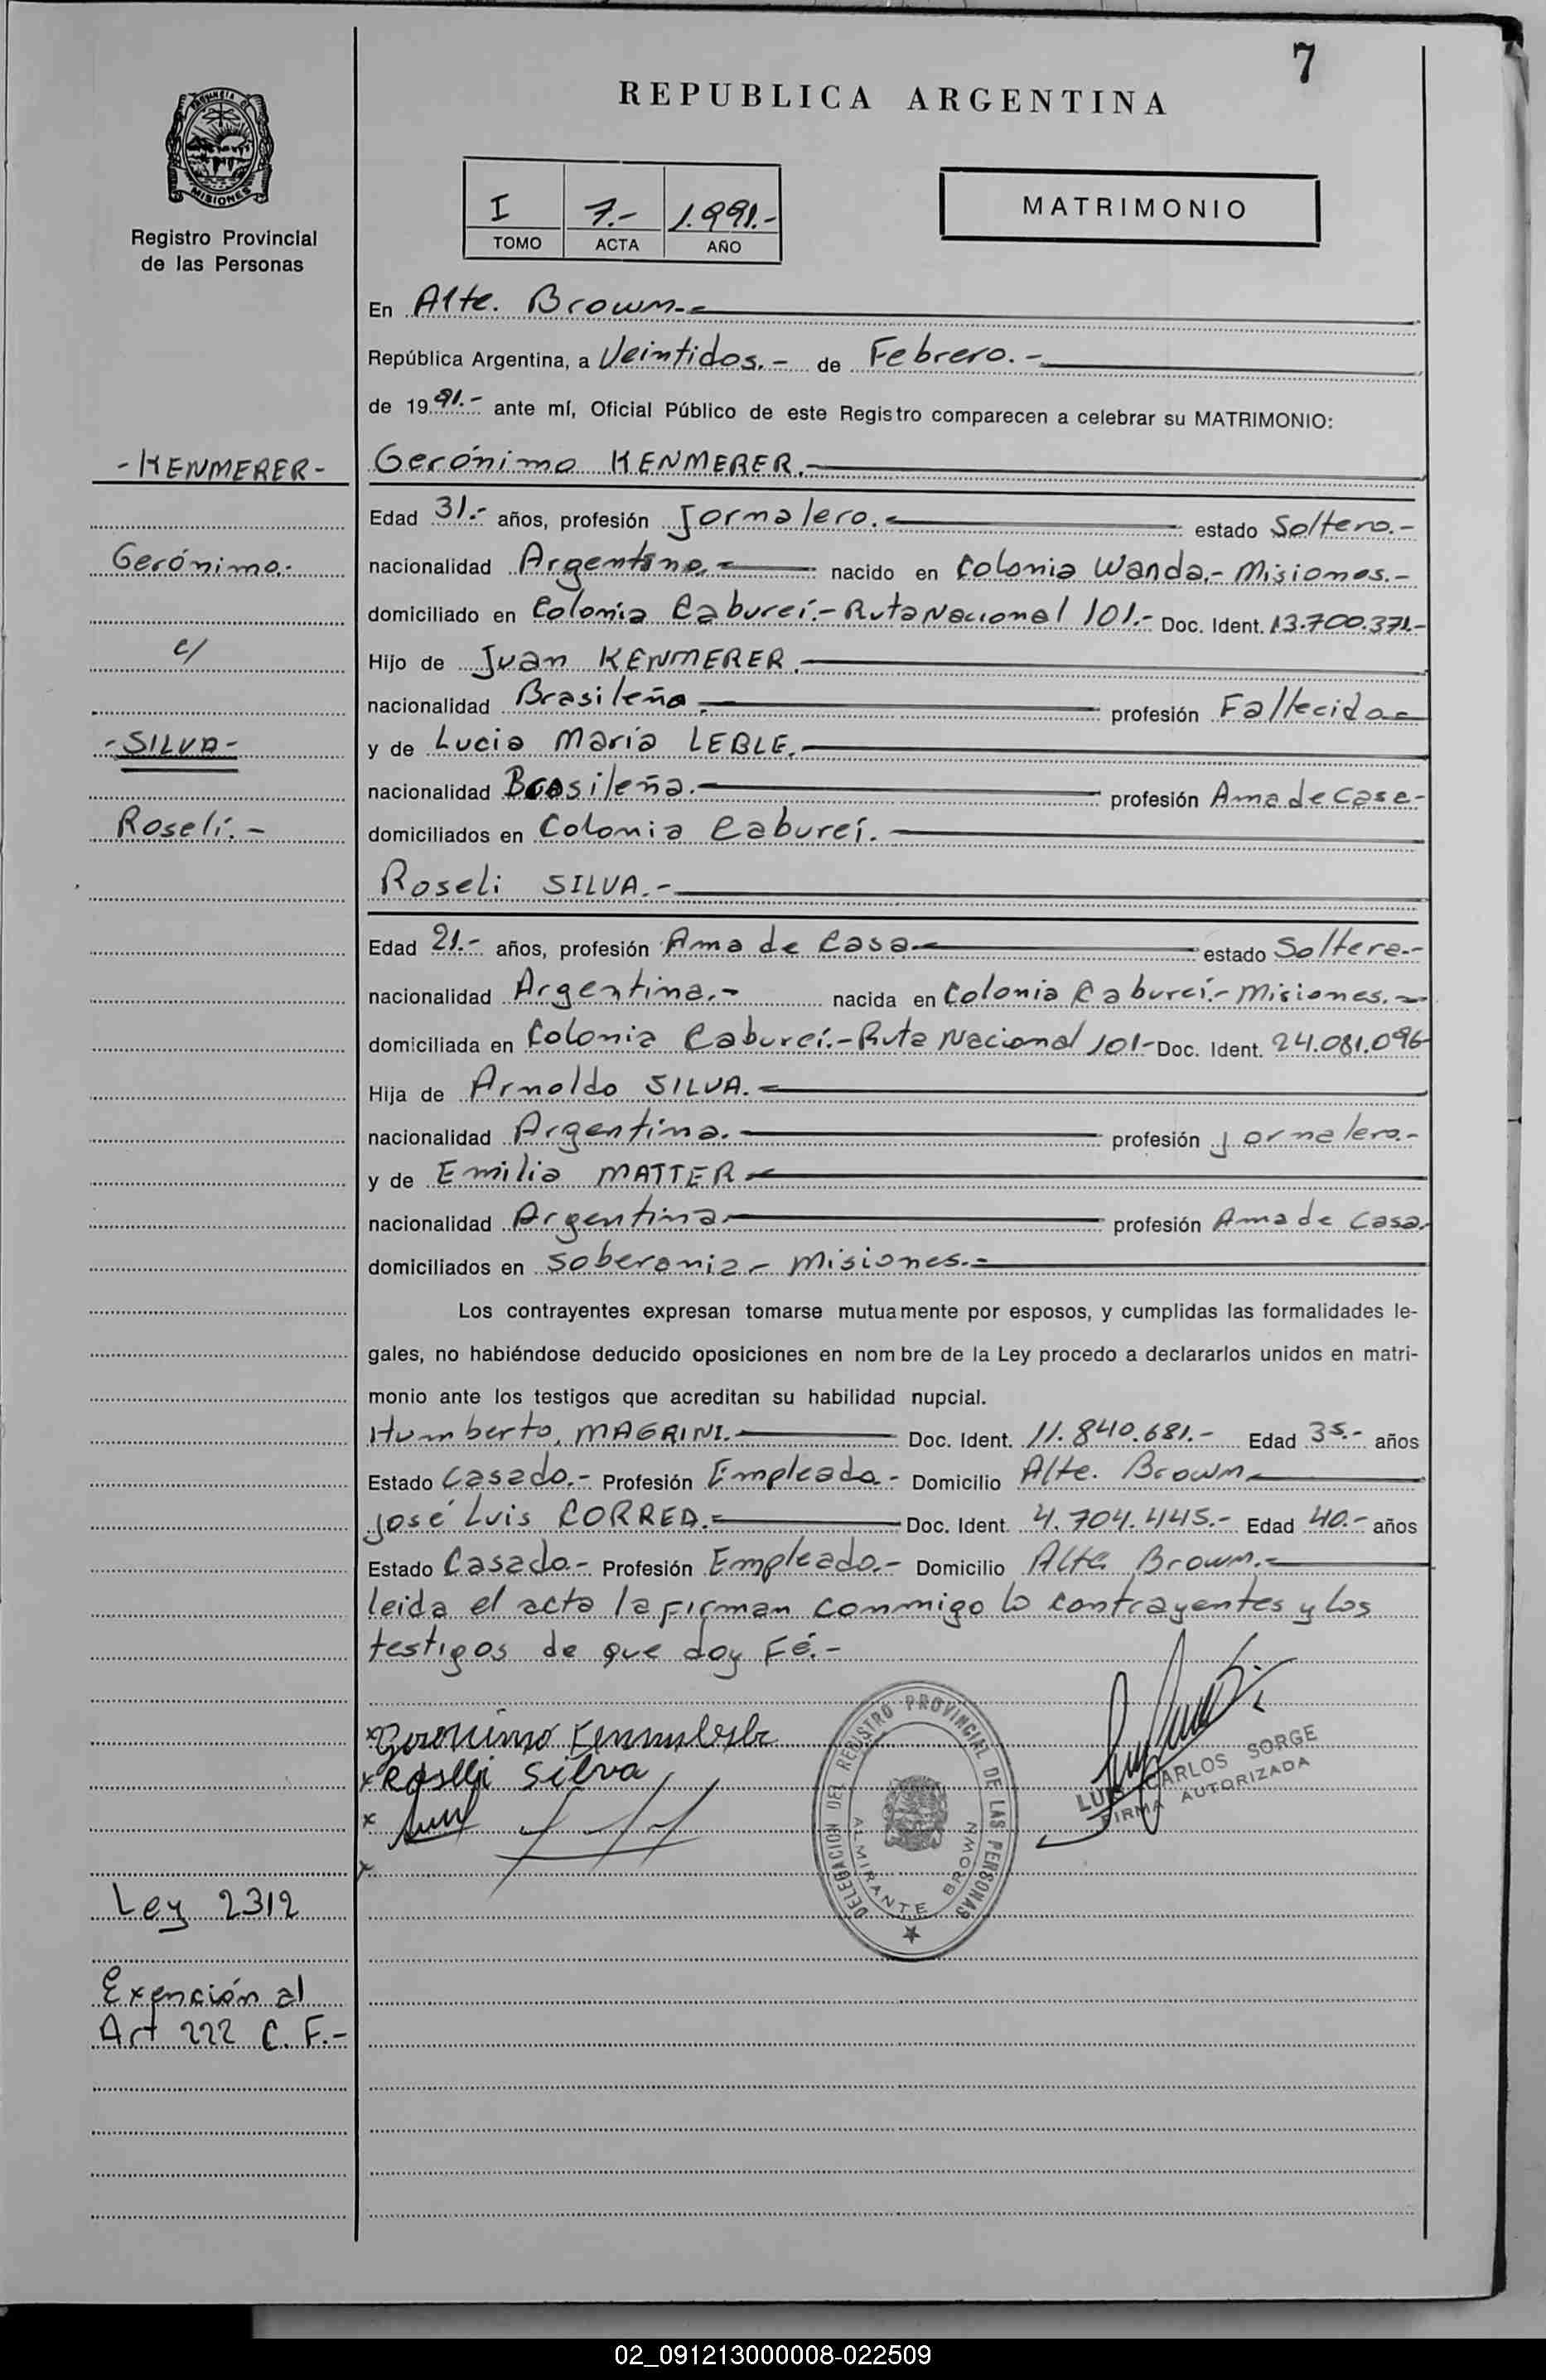 7
REPUBLICA ARGENTINA
PROVINCIA DE
MISIONES
Registro Provincial
de las Personas
I 7.- 1.991.-
TOMO ACTA AÑO
MATRIMONIO
En Alte. Brown.-
República Argentina, a Veintidos.- de Febrero.-
de 1991.- ante mí, Oficial Público de este Registro comparecen a celebrar su MATRIMONIO:
-KENMERER-
Gerónimo KENMERER.-
Edad 31.- años, profesión Jornalero.- estado Soltero.-
Gerónimo.-
nacionalidad Argentino.- nacido en Colonia Wanda.- Misiones.-
domiciliado en Colonia Caburei.- Ruta Nacional 101.- Doc. Ident. 13.700.371.-
c/
Hijo de Juan KENMERER.-
nacionalidad Brasileña.- profesión Fallecido-
-SILVA-
y de Lucia María LEBLE.-
nacionalidad Brasileña.- profesión Ama de Casa-
Roselí.-
domiciliados en Colonia Cabureí.-
Roseli SILVA.-
Edad 21.- años, profesión Ama de Casa- estado Soltera.-
nacionalidad Argentina.- nacida en Colonia Cabureí.- Misiones.-
domiciliada en Colonia Cabureí.- Ruta Nacional 101- Doc. Ident. 24.081.096-
Hija de Arnoldo SILVA.-
nacionalidad Argentina.- profesión jornalero.-
y de Emilia MATTER-
nacionalidad Argentina- profesión Ama de Casa.
domiciliados en Soberania- Misiones.-
Los contrayentes expresan tomarse mutuamente por esposos, y cumplidas las formalidades le-
gales, no habiéndose deducido oposiciones en nombre de la Ley procedo a declararlos unidos en matri-
monio ante los testigos que acreditan su habilidad nupcial.
Humberto, MAGRINI.- Doc. Ident. 11.840.681.- Edad 35.- años
Estado Casado.- Profesión Empleado.- Domicilio Alte. Brown-
José Luis CORREA.- Doc. Ident. 4.704.445.- Edad 40.- años
Estado Casado.- Profesión Empleado.- Domicilio Alte Brown.-
leida el acta la firman conmigo lo contrayentes y los
testigos de que doy Fé.-
x Geronimo
x Roselli Silva
x
x
DELEGACION DEL REGISTRO PROVINCIAL DE LAS PERSONAS
ALMIRANTE BROWN
LUIS CARLOS SORGE
FIRMA AUTORIZADA
Ley 2312
Exención al
Art 222 C. F.-
02_091213000008-022509